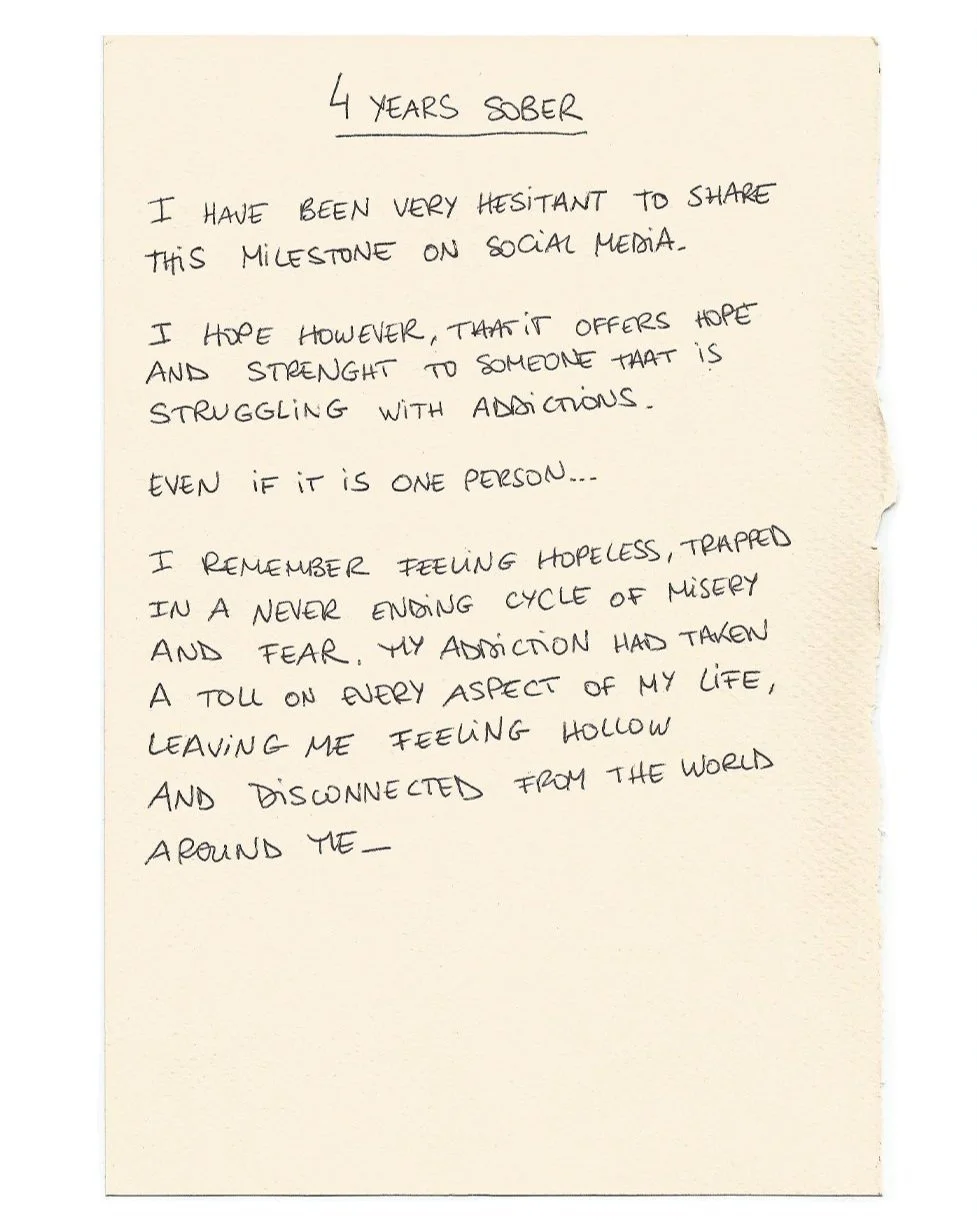 4 YEARS SOBER
I HAVE BEEN VERY HESITANT TO SHARE
THiS MiLESTONE ON SOCiAL MEDiA.
I HOPE HOWEVER, THAT iT OFFERS HOPE
AND STRENGHT TO SOMEONE THAT iS
STRUGGLiNG WiTH ADDiCTiONS.
EVEN iF iT iS ONE PERSON...
I REMEMBER FEELiNG HOPELESS, TRAPPED
IN A NEVER ENDiNG CYCLE OF MiSERY
AND FEAR. MY ADDiCTiON HAD TAKEN
A TOLL ON EVERY ASPECT OF MY LiFE,
LEAViNG ME FEELiNG HOLLOW
AND DiSCONNECTED FROM THE WORLD
AROUND ME_